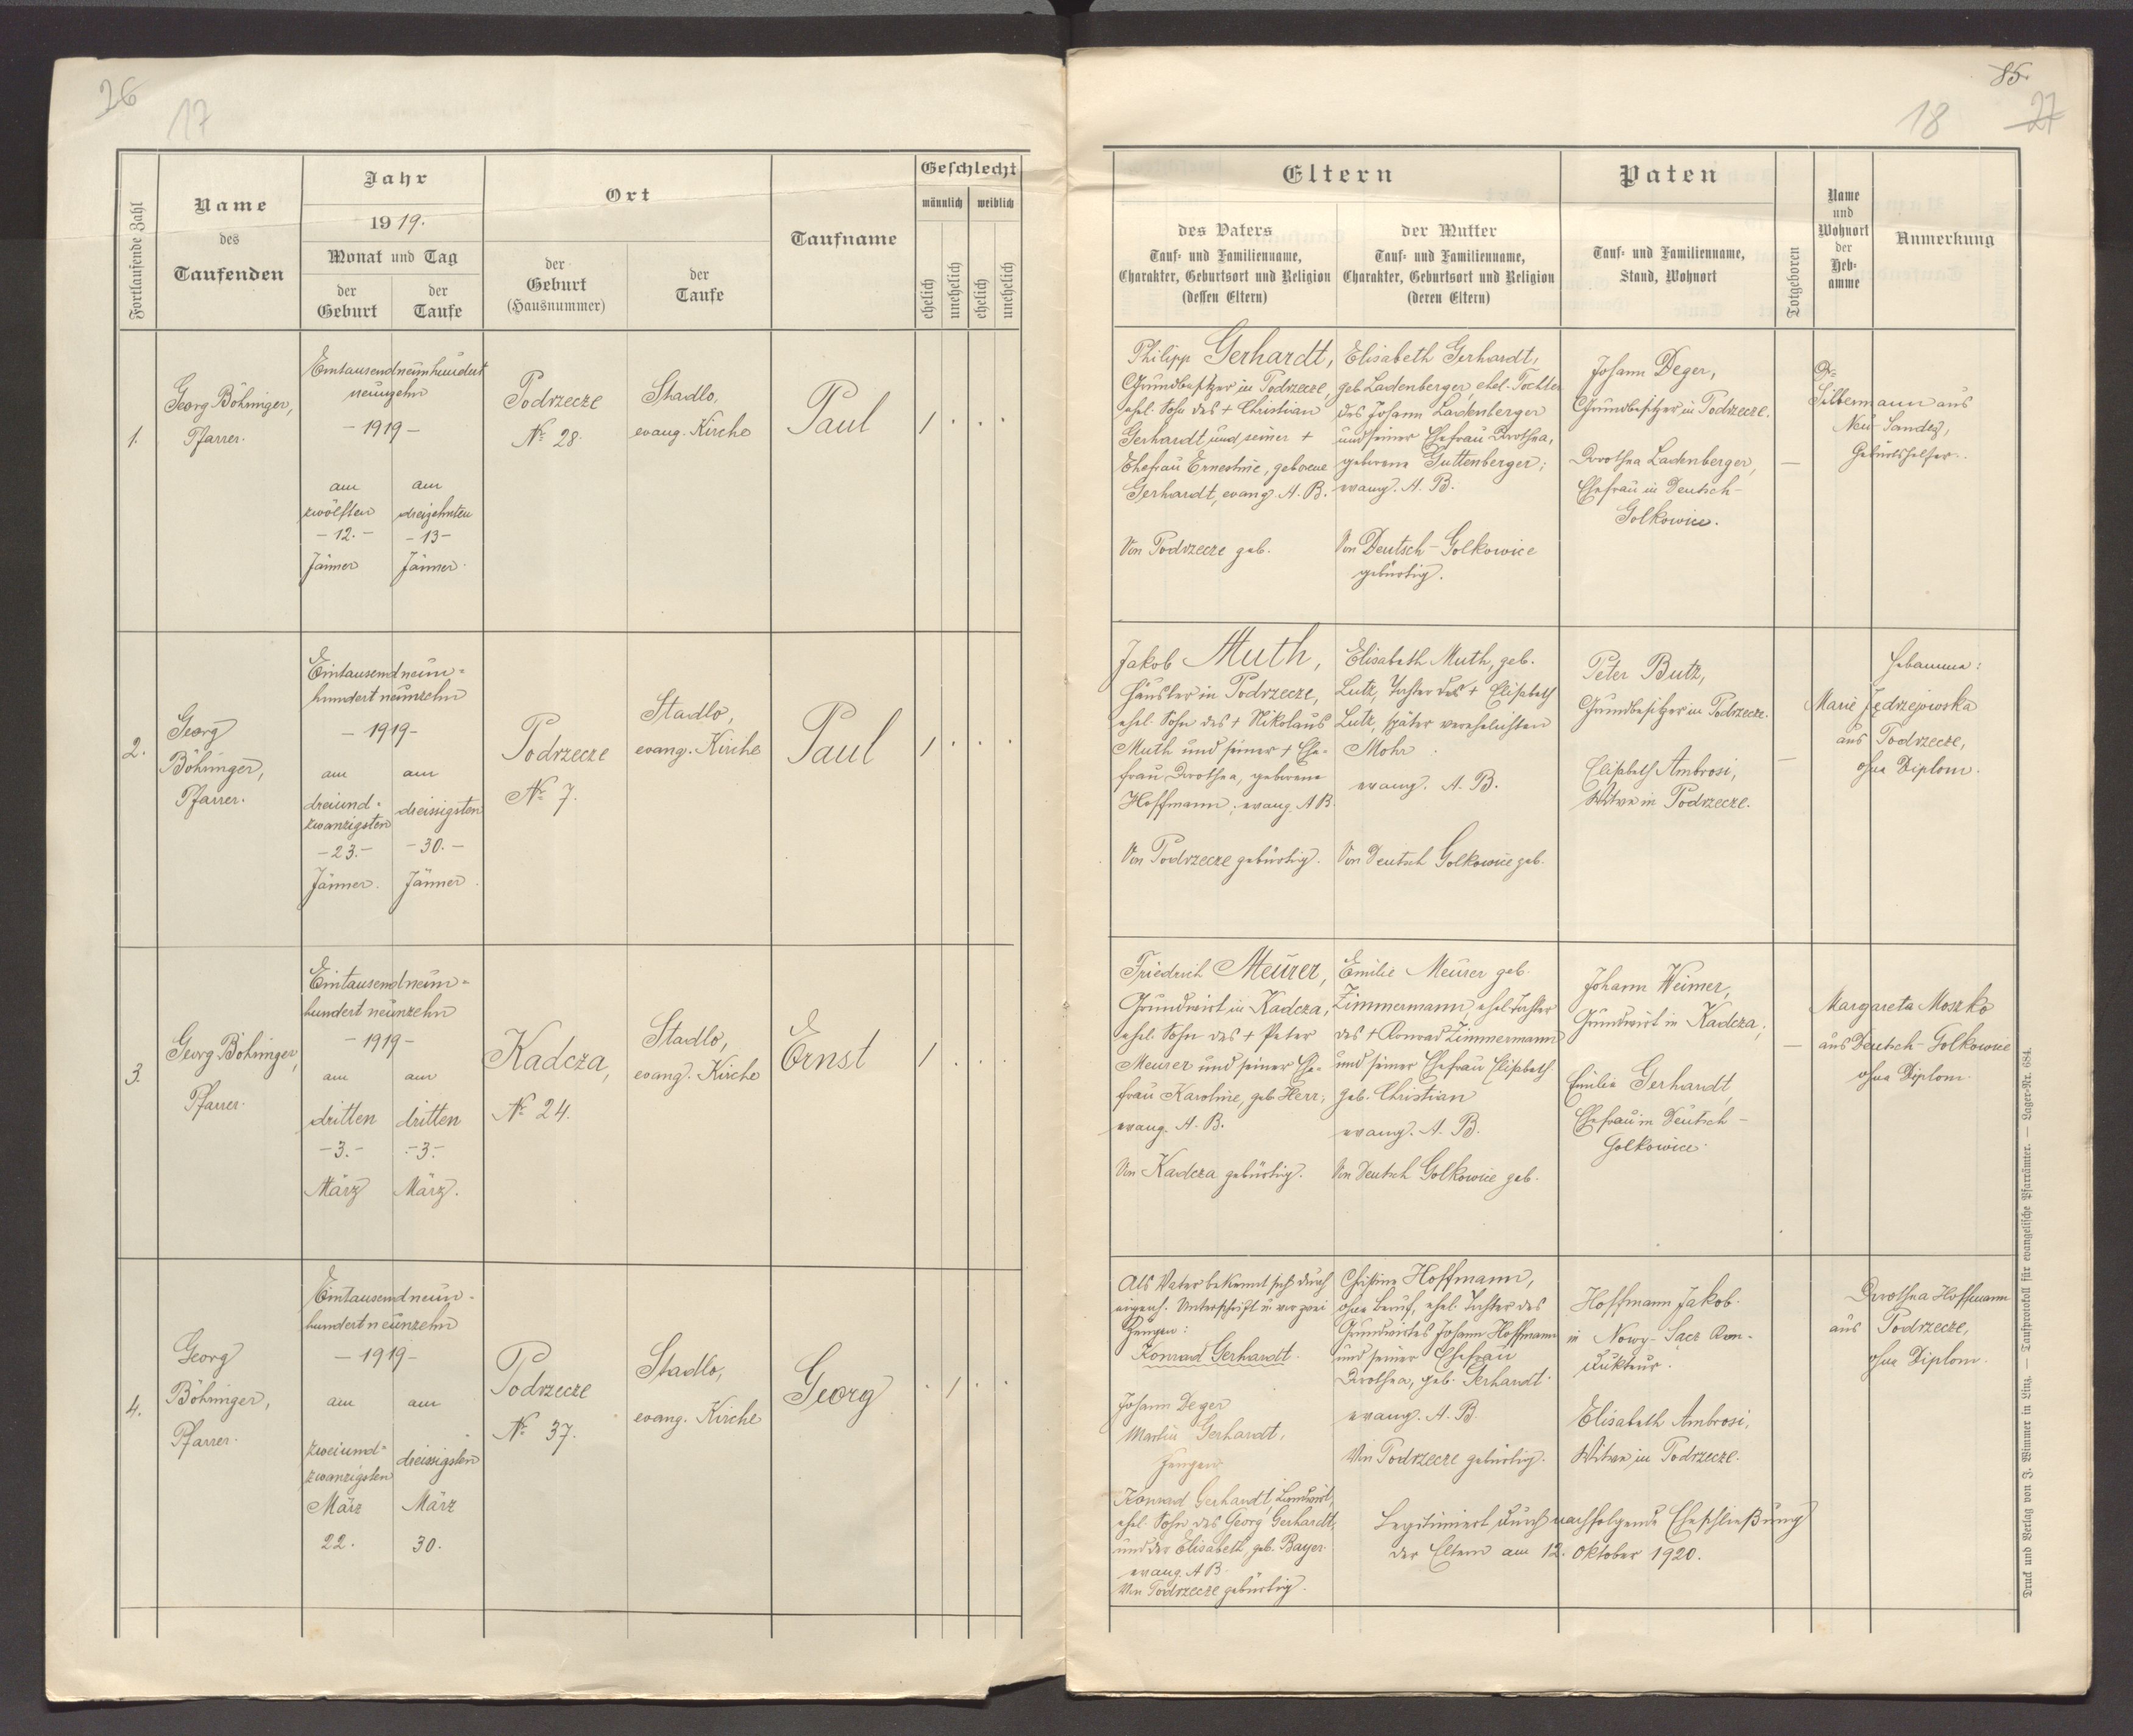 26
17
Fortlaufende Zahl
Name
des
Taufenden
Jahr
1919.
Monat und Tag
der
Geburt
der
Taufe
Ort
der
Geburt
(Hausnummer)
der
Taufe
Taufname
Geschlecht
männlich
weiblich
ehelich
unehelich
ehelich
unehelich
1.
Georg Böhringer,
Pfarrer.
Eintausendneunhundert
neunzehn
- 1919 -
am
zwölften
- 12. -
Jänner
am
dreizehnten
- 13 -
Jänner.
Podrzecze
No 28.
Stadlo,
evang. Kirche
Paul
1 . . .
2.
Georg
Böhringer,
Pfarrer.
Eintausendneun-
hundert neunzehn
- 1919 -
am
dreiund-
zwanzigsten
- 23. -
Jänner.
am
dreissigsten
- 30. -
Jänner.
Podrzecze
No 7.
Stadlo,
evang. Kirche
Paul
1 . . .
3.
Georg Böhringer,
Pfarrer.
Eintausendneun-
hundert neunzehn
- 1919 -
am
dritten
- 3. -
März
am
dritten
- 3. -
März.
Kadcza,
No 24.
Stadlo,
evang. Kirche
Ernst
1 . . .
4.
Georg
Böhringer,
Pfarrer.
Eintausendneun-
hundert neunzehn
- 1919 -
am
zweiund-
zwanzigsten
März
22.
am
dreissigsten
März
30.
Podrzecze
No 37.
Stadlo,
evang. Kirche
Georg
. 1 . .
85.
18
27
Eltern
des Vaters
Tauf- und Familienname,
Charakter, Geburtsort und Religion
(dessen Eltern)
der Mutter
Tauf- und Familienname,
Charakter, Geburtsort und Religion
(deren Eltern)
Paten
Tauf- und Familienname,
Stand, Wohnort
Totgeboren
Name
und
Wohnort
der
Heb-
amme
Anmerkung
Philipp Gerhardt,
Grundbesitzer in Podrzecze,
ehel. Sohn des + Christian
Gerhardt und seiner +
Ehefrau Ernestine, geborene
Gerhardt, evang. A. B.
Von Podrzecze geb.
Elisabeth Gerhardt,
geb. Ladenberger, ehel. Tochter
des Johann Ladenberger
und seiner Ehefrau Dorothea,
geborene Guttenberger;
evang. A. B.
Von Deutsch-Golkowice
gebürtig.
Johann Deger,
Grundbesitzer in Podrzecze.
Dorothea Ladenberger,
Ehefrau in Deutsch-
Golkowice.
—
Dr.
Silbermann aus
Neu-Sandez,
Geburtshelfer.
Jakob Muth,
Häusler in Podrzecze,
ehel. Sohn des + Nikolaus
Muth und seiner + Ehe-
frau Dorothea, geborene
Hoffmann; evang. A B.
Von Podrzecze gebürtig.
Elisabeth Muth, geb.
Lutz, Tochter des + Elisabeth
Lutz, später verehelichten
Mohr.
evang. A. B.
Von Deutsch Golkowice geb.
Peter Butz,
Grundbesitzer in Podrzecze.
Elisabeth Ambrosi,
Witwe in Podrzecze.
—
Hebamme:
Marie Jędrzejowska
aus Podrzecze,
ohne Diplom.
Friedrich Meurer,
Grundwirt in Kadcza,
ehel. Sohn des + Peter
Meurer und seiner Ehe-
frau Karoline, geb. Herr;
evang. A. B.
Von Kadcza gebürtig.
Emilie Meurer geb.
Zimmermann, ehel. Tochter
des + Konrad Zimmermann
und seiner Ehefrau Elisabeth
geb. Christian
evang. A. B.
Von Deutsch Golkowice geb.
Johann Weimer,
Grundwirt in Kadcza;
Emilie Gerhardt,
Ehefrau in Deutsch-
Golkowice.
—
Margareta Moszko
aus Deutsch-Golkowice
ohne Diplom.
Als Vater bekennt sich durch
eigenh. Unterschrift u. vor zwei
Zeugen:
Konrad Gerhardt.
Johann Deger
Martin Gerhardt,
Zeugen
Konrad Gerhardt, Landwirt,
ehel. Sohn des Georg Gerhardt,
und der Elisabeth, geb. Bayer.
evang. A B.
Von Podrzecze gebürtig.
Christine Hoffmann,
ohne Beruf, ehel. Tochter des
Grundwirtes Johann Hoffmann
und seiner Ehefrau
Dorothea, geb. Gerhardt.
evang. A. B.
Von Podrzecze gebürtig.
Hoffmann Jakob.
in Nowy-Sącz Kon-
dukteur.
Elisabeth Ambrosi,
Witwe in Podrzecze.
Dorothea Hoffmann
aus Podrzecze,
ohne Diplom.
Legitimiert durch nachfolgende Eheschließung
der Eltern am 12. Oktober 1920.
Druck und Verlag von J. Wimmer in Linz. — Taufprotokoll für evangelische Pfarrämter. — Lager-Nr. 684.